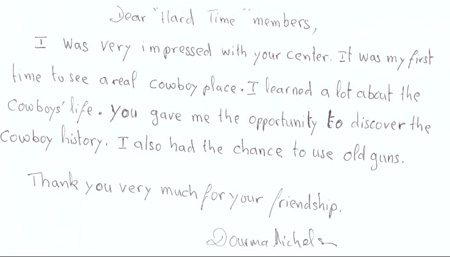 Dear "Hard Time" members,
I was very impressed with your center. It was my first
time to see a real Cowboy place. I learned a lot about the
Cowboys' life. You gave me the opportunity to discover the
Cowboy history. I also had the chance to use old guns.
Thank you very much for your friendship.